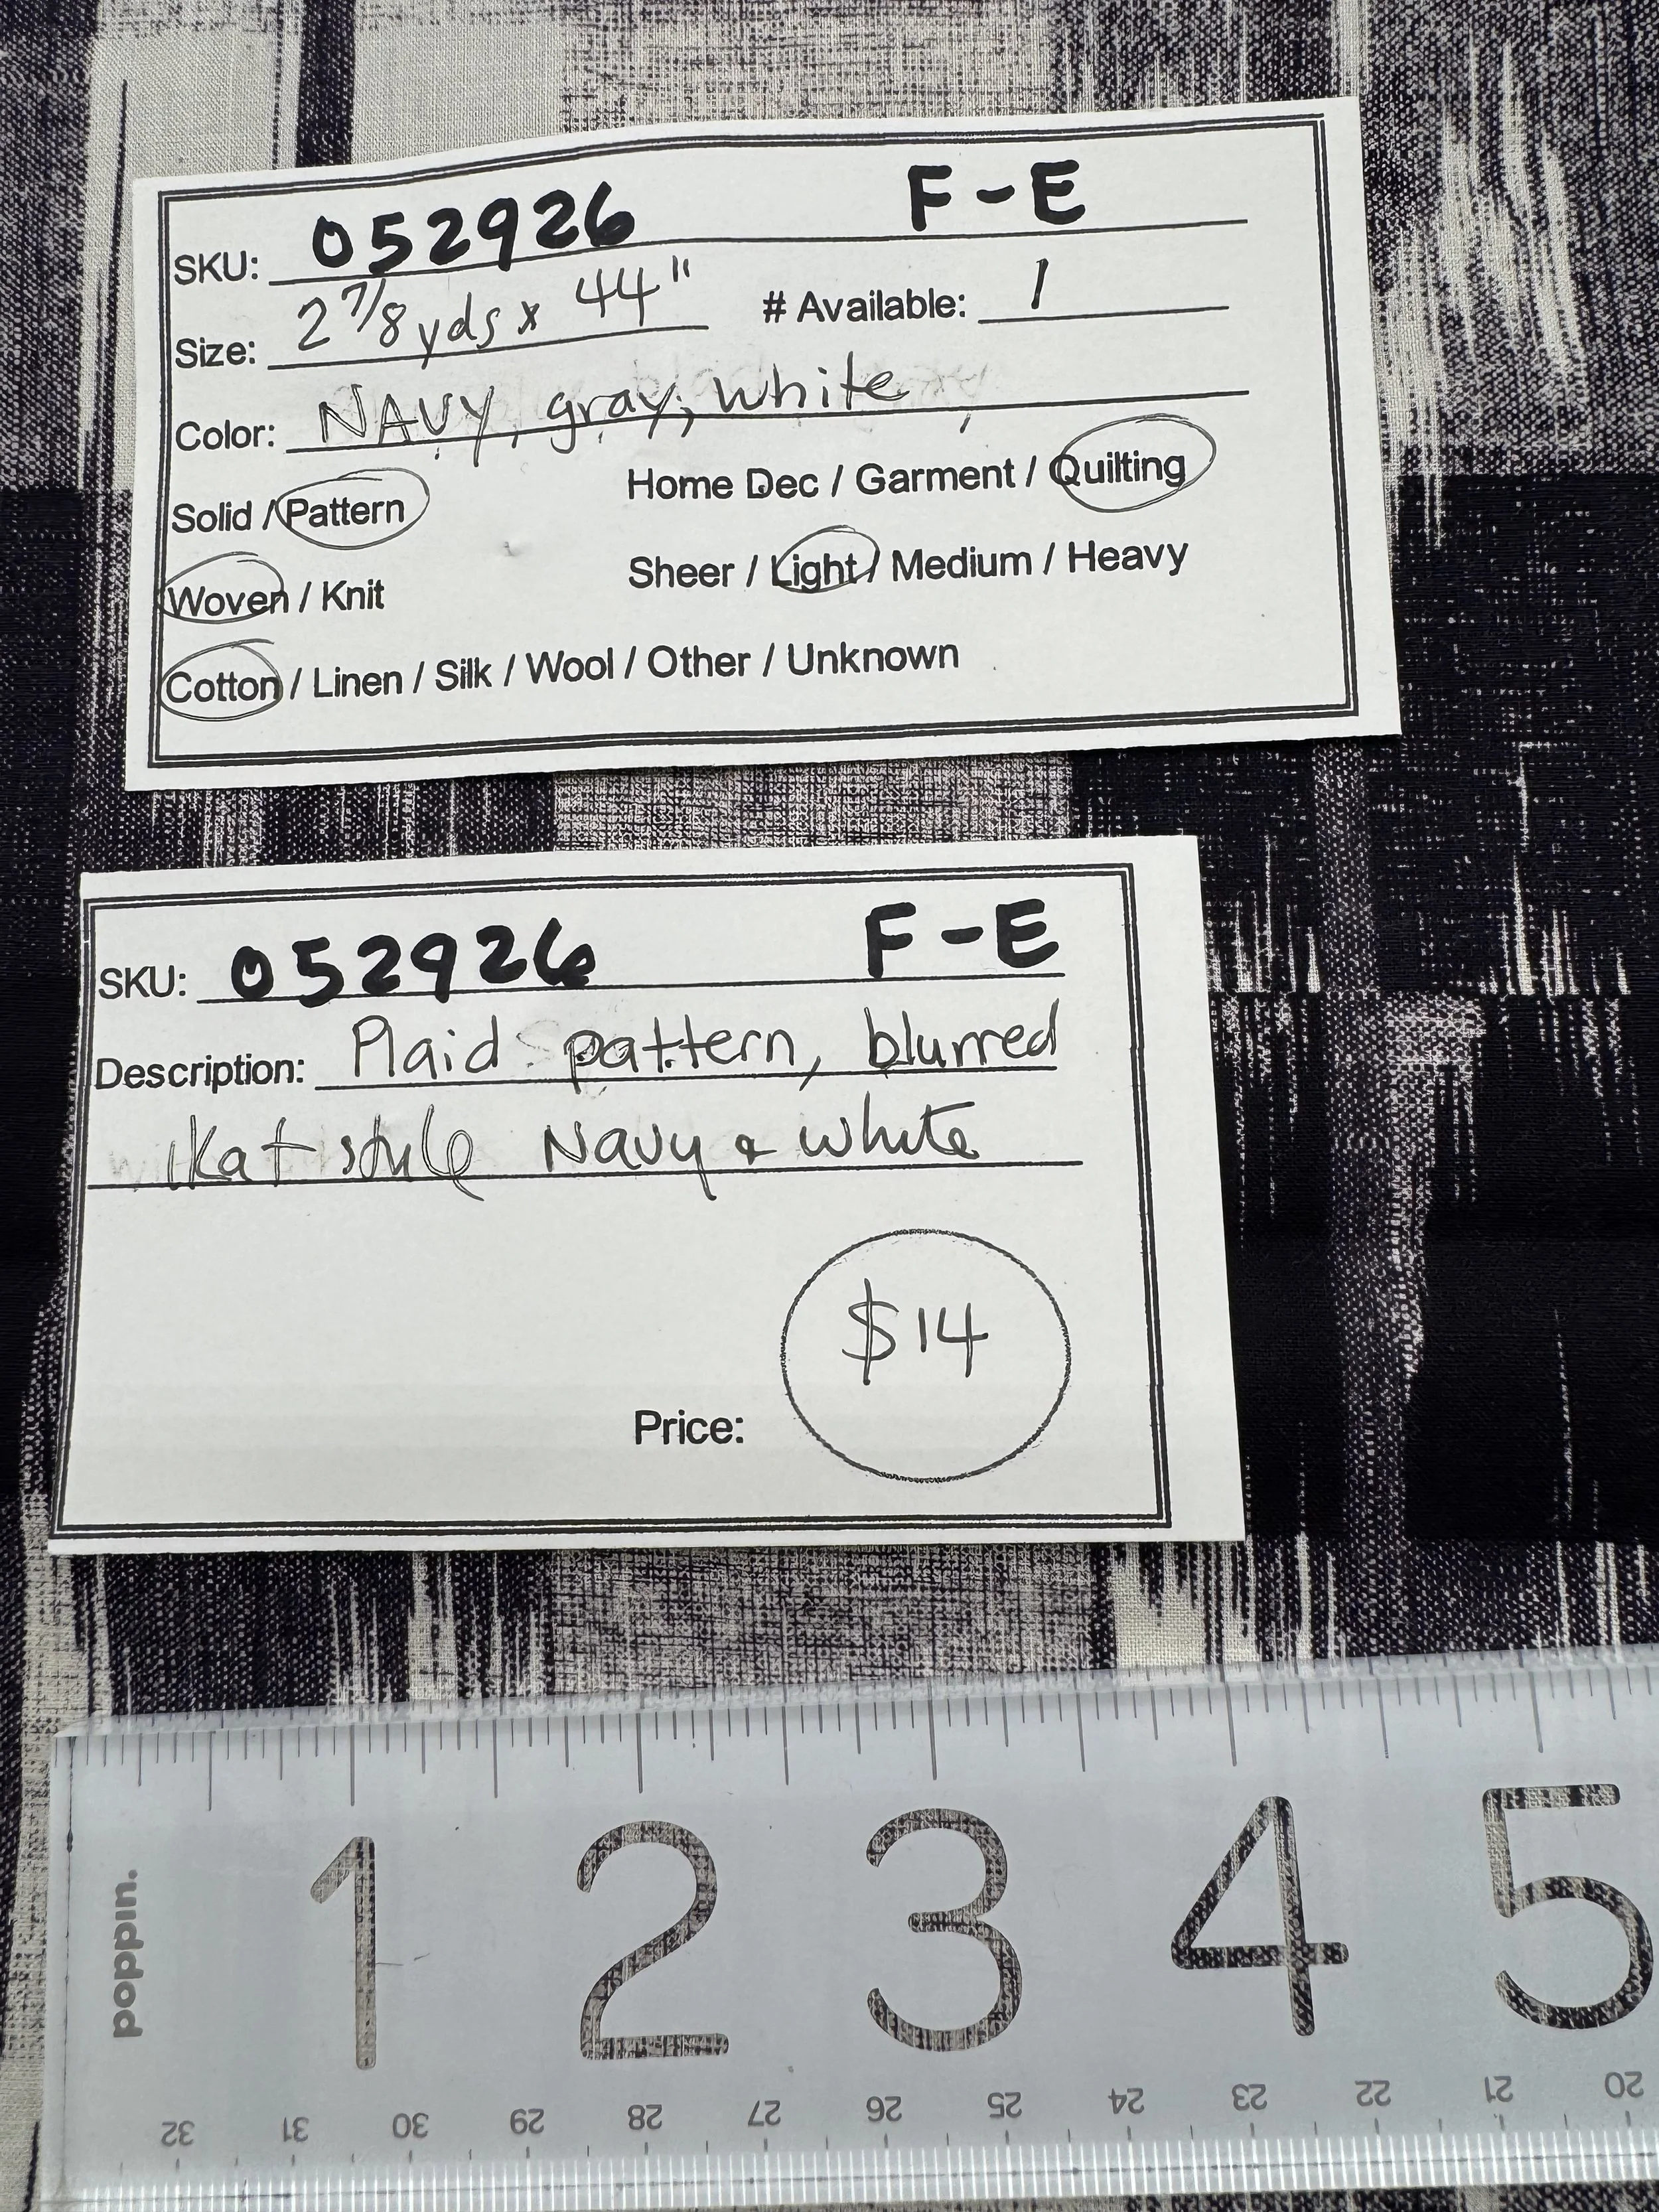 SKU: 052926 F-E
Size: 2 7/8 yds x 44" # Available: 1
Color: NAVY, gray, white
Solid / Pattern Home Dec / Garment / Quilting
Woven / Knit Sheer / Light / Medium / Heavy
Cotton / Linen / Silk / Wool / Other / Unknown
SKU: 052926 F-E
Description: Plaid pattern, blurred
ikat style Navy & white
$14
Price:
1 2 3 4 5
poppin.
32 31 30 29 28 27 26 25 24 23 22 21 20